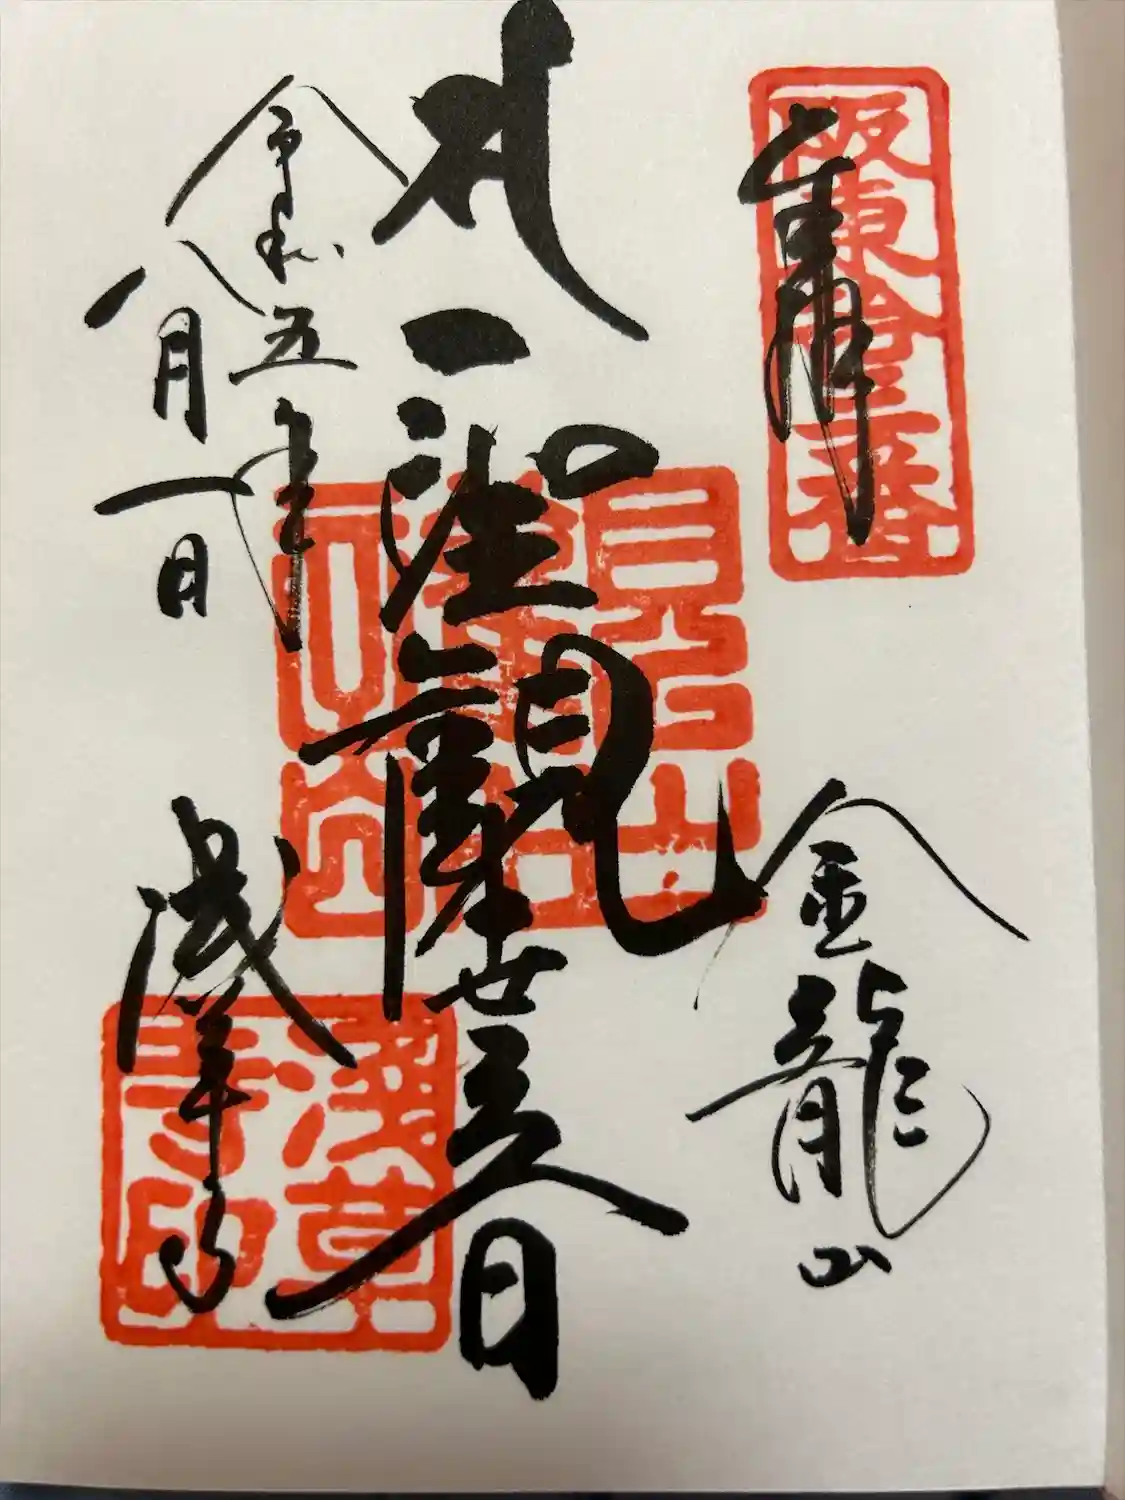 奉拝
阪東拾三番
金龍山
聖観世音
令和五年
八月一日
浅草寺
浅草寺印